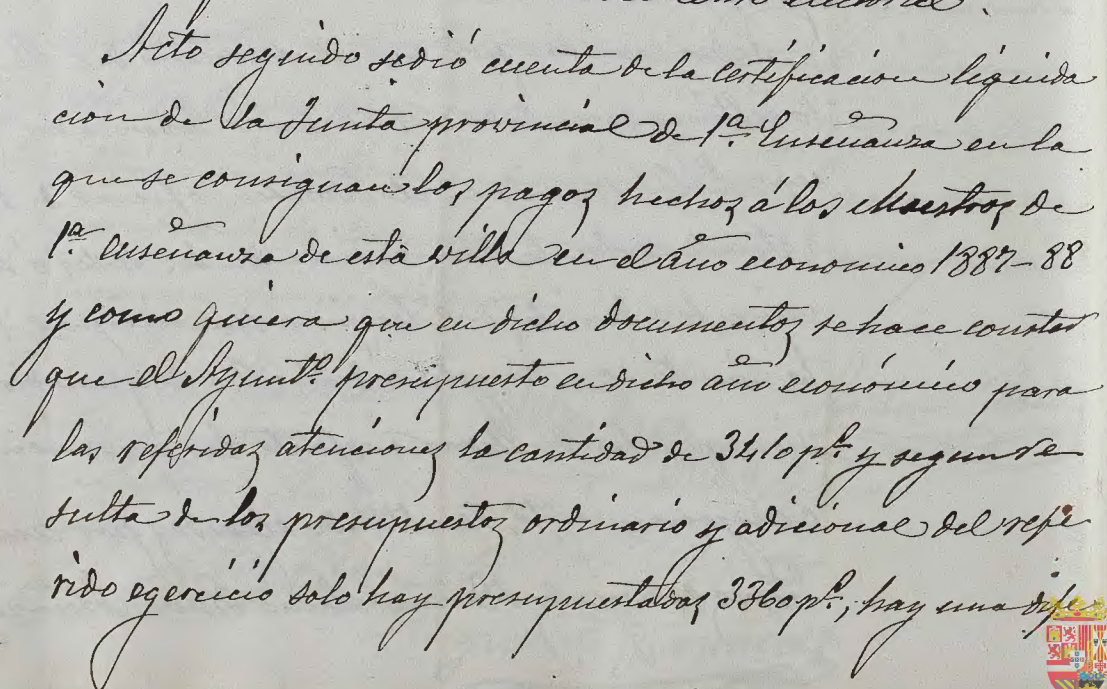 electoral.
Acto seguido se dió cuenta de la certificacion liquida
cion de la Junta provincial de 1ª Enseñanza en la
que se consignan los pagos hechos á los Maestros de
1ª enseñanza de esta villa en el año economico 1887-88
y como quiera que en dicho documentos se hace constar
que el Ayuntº presupuesto en dicho año económico para
las referidas atenciones la cantidad de 3410 pˢ y segun re
sulta de los presupuestos ordinario y adicional del refe
rido egercicio solo hay presupuestadas 3360 pˢ, hay una dife